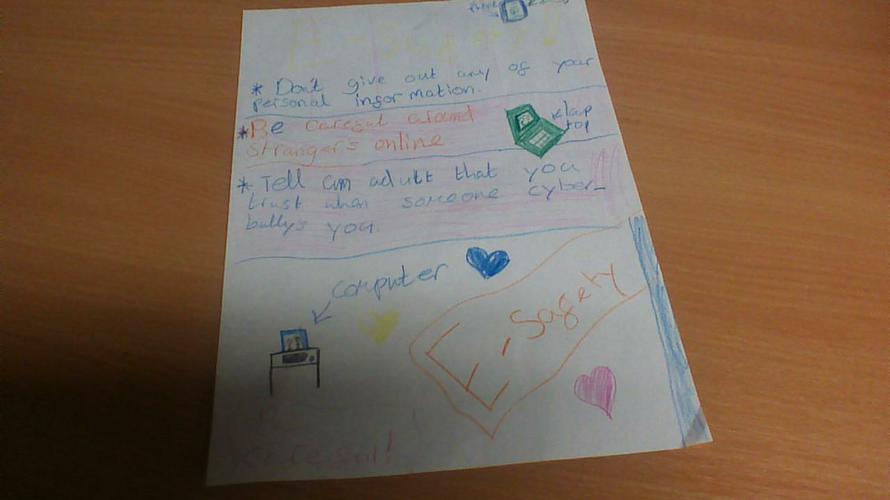 * Don't give out any of your
personal information.
* Be careful around
strangers online
* Tell an adult that you
trust when someone cyber-
bullys you.
laptop
computer
E-Safety
careful!